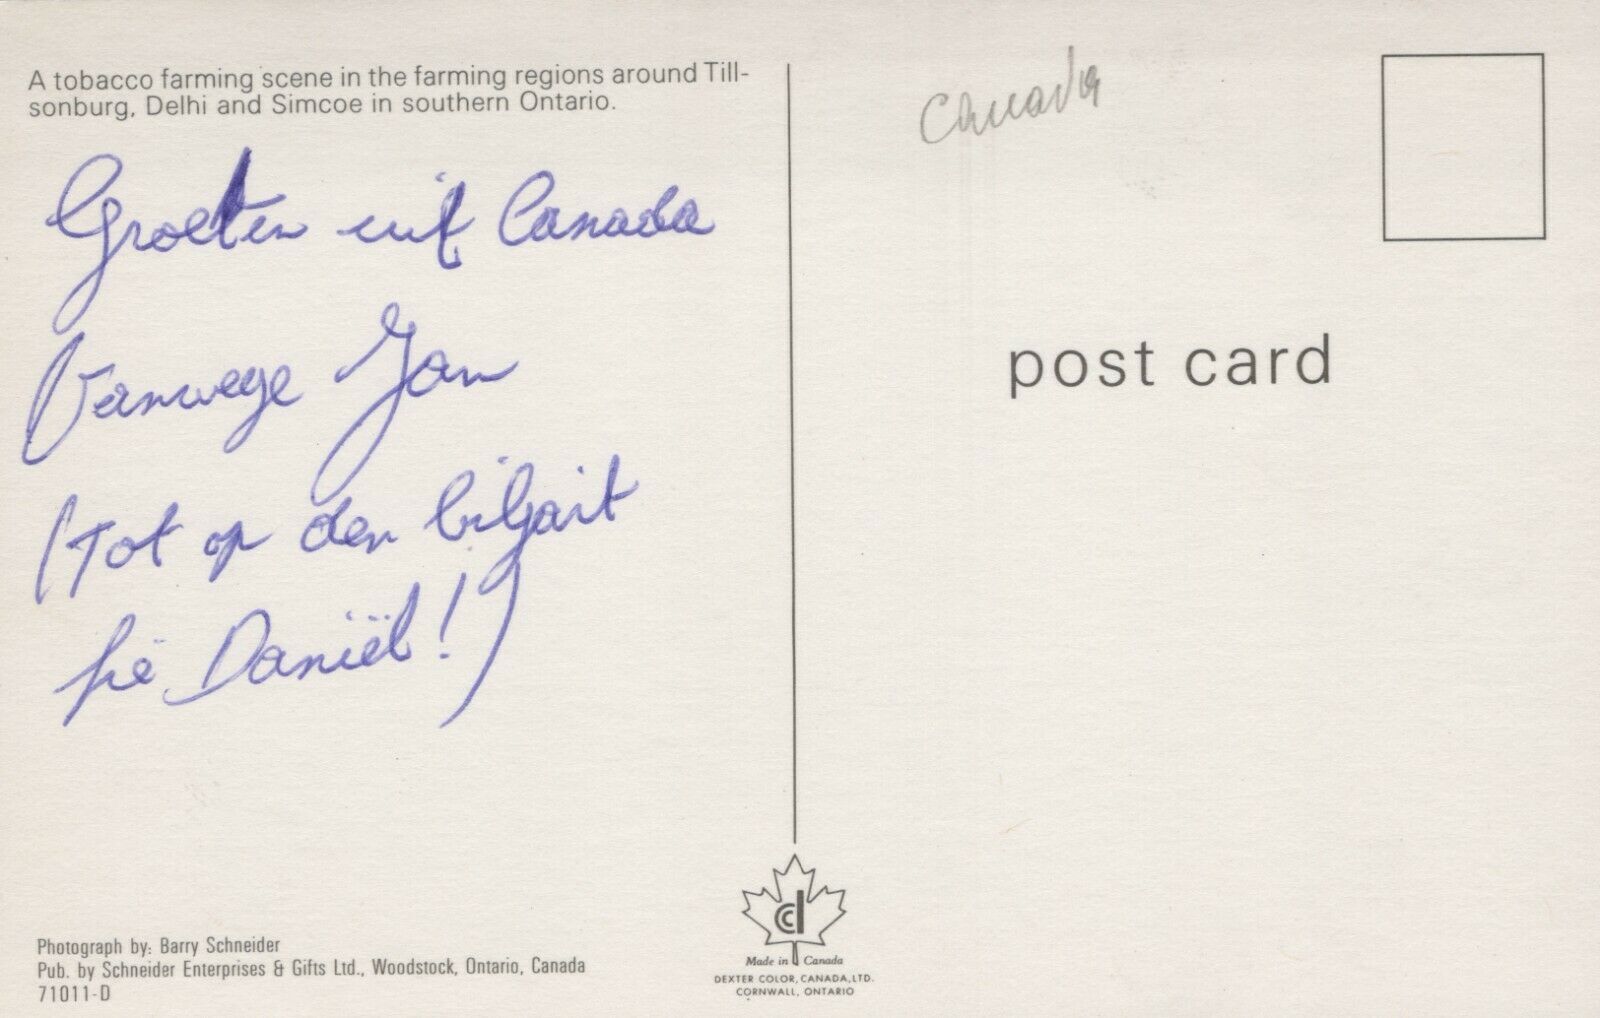 A tobacco farming scene in the farming regions around Till-
sonburg, Delhi and Simcoe in southern Ontario.
Groeten uit Canada
Vanwege Jan
(Tot op den biljart
hé Daniël!)
Canada
post card
Photograph by: Barry Schneider
Pub. by Schneider Enterprises & Gifts Ltd., Woodstock, Ontario, Canada
71011-D
Made in Canada
DEXTER COLOR, CANADA, LTD.
CORNWALL, ONTARIO